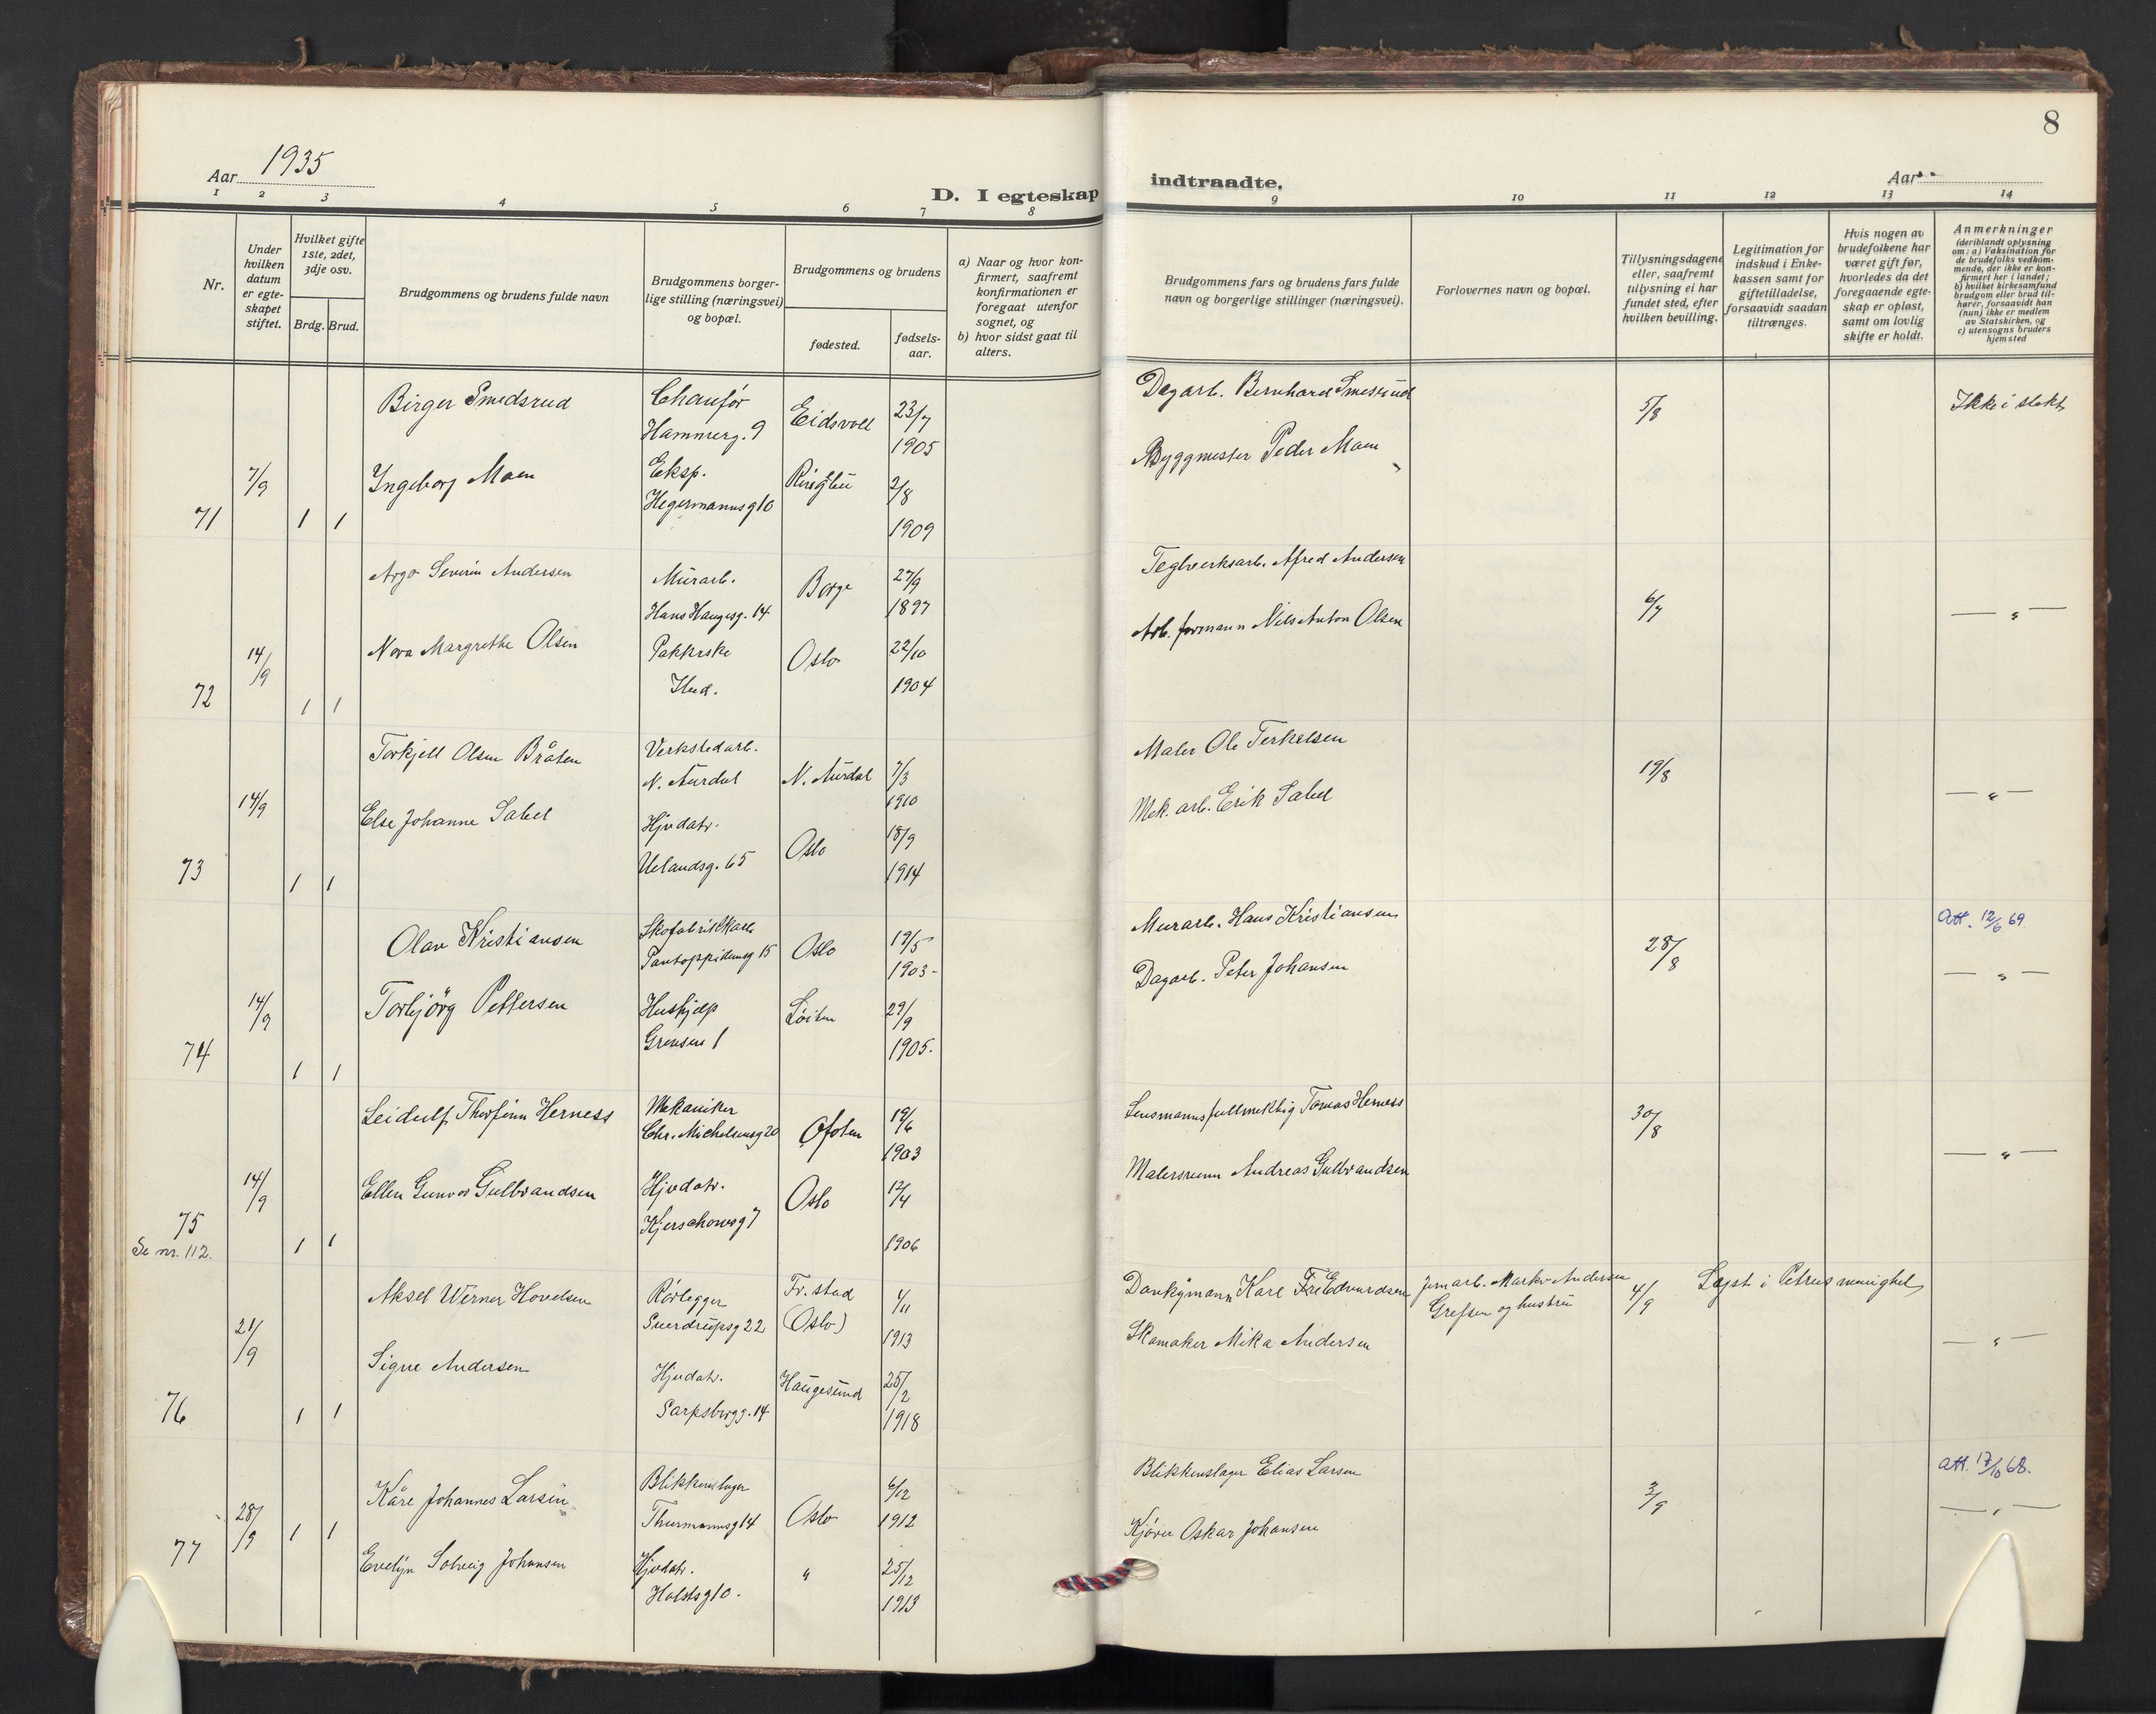 8
Aar 1935
D. I egteskap
indtraadte.
Aar
1 2 3 4 5 6 7 8 9 10 11 12 13 14
Nr.
Under
hvilken
datum
er egte-
skapet
stiftet.
Hvilket gifte
1ste, 2det,
3dje osv.
Brdg. Brud.
Brudgommens og brudens fulde navn
Brudgommens borger-
lige stilling (næringsvei)
og bopæl.
Brudgommens og brudens
fødested.
fødsels-
aar.
a) Naar og hvor kon-
firmert, saafremt
konfirmationen er
foregaat utenfor
sognet, og
b) hvor sidst gaat til
alters.
Brudgommens fars og brudens fars fulde
navn og borgerlige stillinger (næringsvei).
Forlovernes navn og bopæl.
Tillysningsdagene
eller, saafremt
tillysning ei har
fundet sted, efter
hvilken bevilling.
Legitimation for
indskud i Enke-
kassen samt for
giftetilladelse,
forsaavidt saadan
tiltrænges.
Hvis nogen av
brudefolkene har
været gift før,
hvorledes da det
foregaaende egte-
skap er opløst,
samt om lovlig
skifte er holdt.
Anmerkninger
(deriblandt oplysning
om: a) Vaksination for
de brudefolks vedkom-
mende, der ikke er kon-
firmert her i landet;
b) hvilket kirkesamfund
brudgom eller brud til-
hører, forsaavidt han
(hun) ikke er medlem
av Statskirken, og
c) utensogns bruders
hjemsted
71
7/9
1 1
Birger Smedsrud
Chaufør
Hammerg. 9
Eidsvoll
23/7
1905
Ingeborg Moen
Eksp.
Hegermannsg 10
Ringbu
2/8
1909
Dagarb. Bernhard Smesrud
Byggmester Peder Moen
5/8
Ikke i slekt
72
14/9
1 1
Argo Severin Andersen
Murarb.
Hans Haugesg. 14
Borge
27/9
1897
Nora Margrethe Olsen
Pakkrske
Ilud.
Oslo
22/10
1904
Teglverksarb. Afred Andersen
Arb. formann Nils Anton Olsen
6/7
— " —
73
14/9
1 1
Torkjell Olsen Bråten
Verkstedarb.
N. Aurdal
N. Aurdal
7/3
1910
Else Johanne Sabel
Hjvdatr.
Uelandsg. 65
Oslo
18/9
1914
Maler Ole Terkelsen
Mek. arb. Erik Sabel
19/8
— " —
74
14/9
1 1
Olav Kristiansen
Skofabrikkarb
Pantoppidansg 15
Oslo
19/5
1903-
Torbjörg Pettersen
Hushjelp
Grensen 1
Löiten
29/9
1905.
Murarb. Hans Kristiansen
Dagarb. Peter Johansen
28/8
Att. 12/6 69
— " —
75
Se nr. 112.
14/9
1 1
Leidulf Thorfinn Herness
Mekaniker
Chr. Michelsensg 20
Ofoten
19/6
1903
Ellen Gunvor Gulbrandsen
Hjvdatr.
Kjerschowsg 7
Oslo
12/4
1906
Lensmannsfullmektig Tomas Herness
Malersvenn Andreas Gulbrandsen
30/8
— " —
76
21/9
1 1
Aksel Werner Hovelsen
Rørlegger
Sverdrupsg 22
Fr. stad
(Oslo)
4/11
1913
Signe Andersen
Hjvdatr.
Sarpsborgg. 14
Haugesund
25/2
1918
Karl Edvardsen
Skomaker Mika Andersen
Jernarb. Andersen
Grefsen og hustru
4/9
Lyst i Petrus menighet
— " —
77
28/9
1 1
Kåre Johannes Larsen
Blikkenslager
Thurmannsg 14
Oslo
6/12
1912
Evelyn Solveig Johansen
Hjvdatr.
Holstsg 10.
"
25/12
1913
Blikkenslager Elias Larsen
Kjører Oskar Johansen
3/9
att. 17/10 68.
— " —